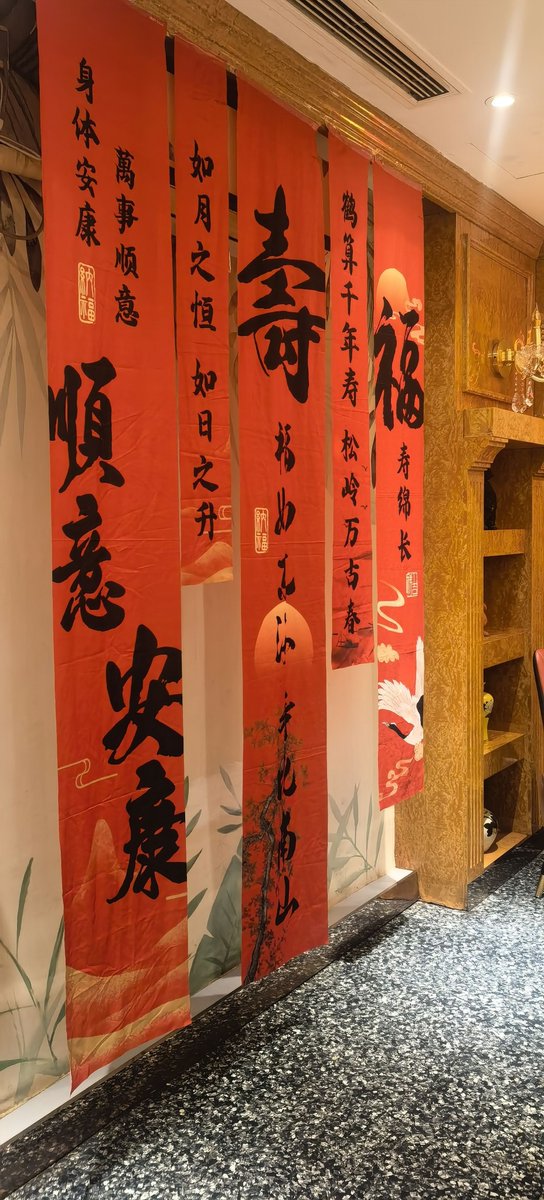 身体安康
萬事順意
納福
順意
安康
如月之恒 如日之升
壽
福如东海 寿比南山
納福
鹤算千年寿 松岭万古春
福
寿绵长